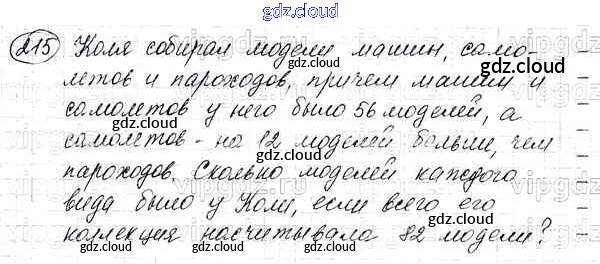 gdz.cloud
215 Коля собирал модели машин, само-
летов и пароходов, причем машин и
самолетов у него было 56 моделей, а
самолетов - на 12 моделей больше, чем
пароходов. Сколько моделей каждого
вида было у Коли, если всего его
коллекция насчитывала 82 модели?